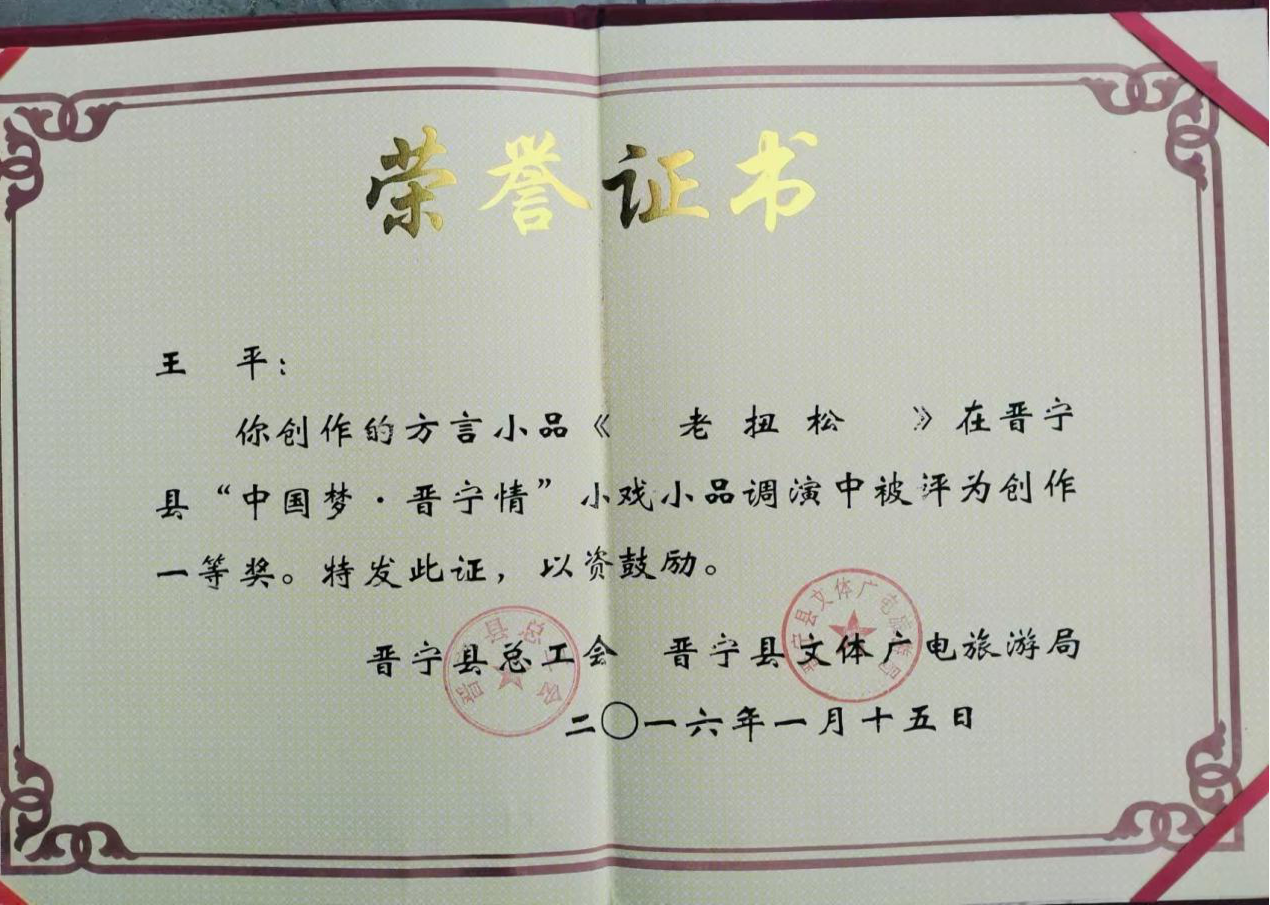 荣誉证书
王 平：
你创作的方言小品《 老 扭 松 》在晋宁
县“中国梦·晋宁情”小戏小品调演中被评为创作
一等奖。特发此证，以资鼓励。
晋宁县总工会 晋宁县文体广电旅游局
二〇一六年一月十五日
晋宁县总工会
晋宁县文体广电旅游局